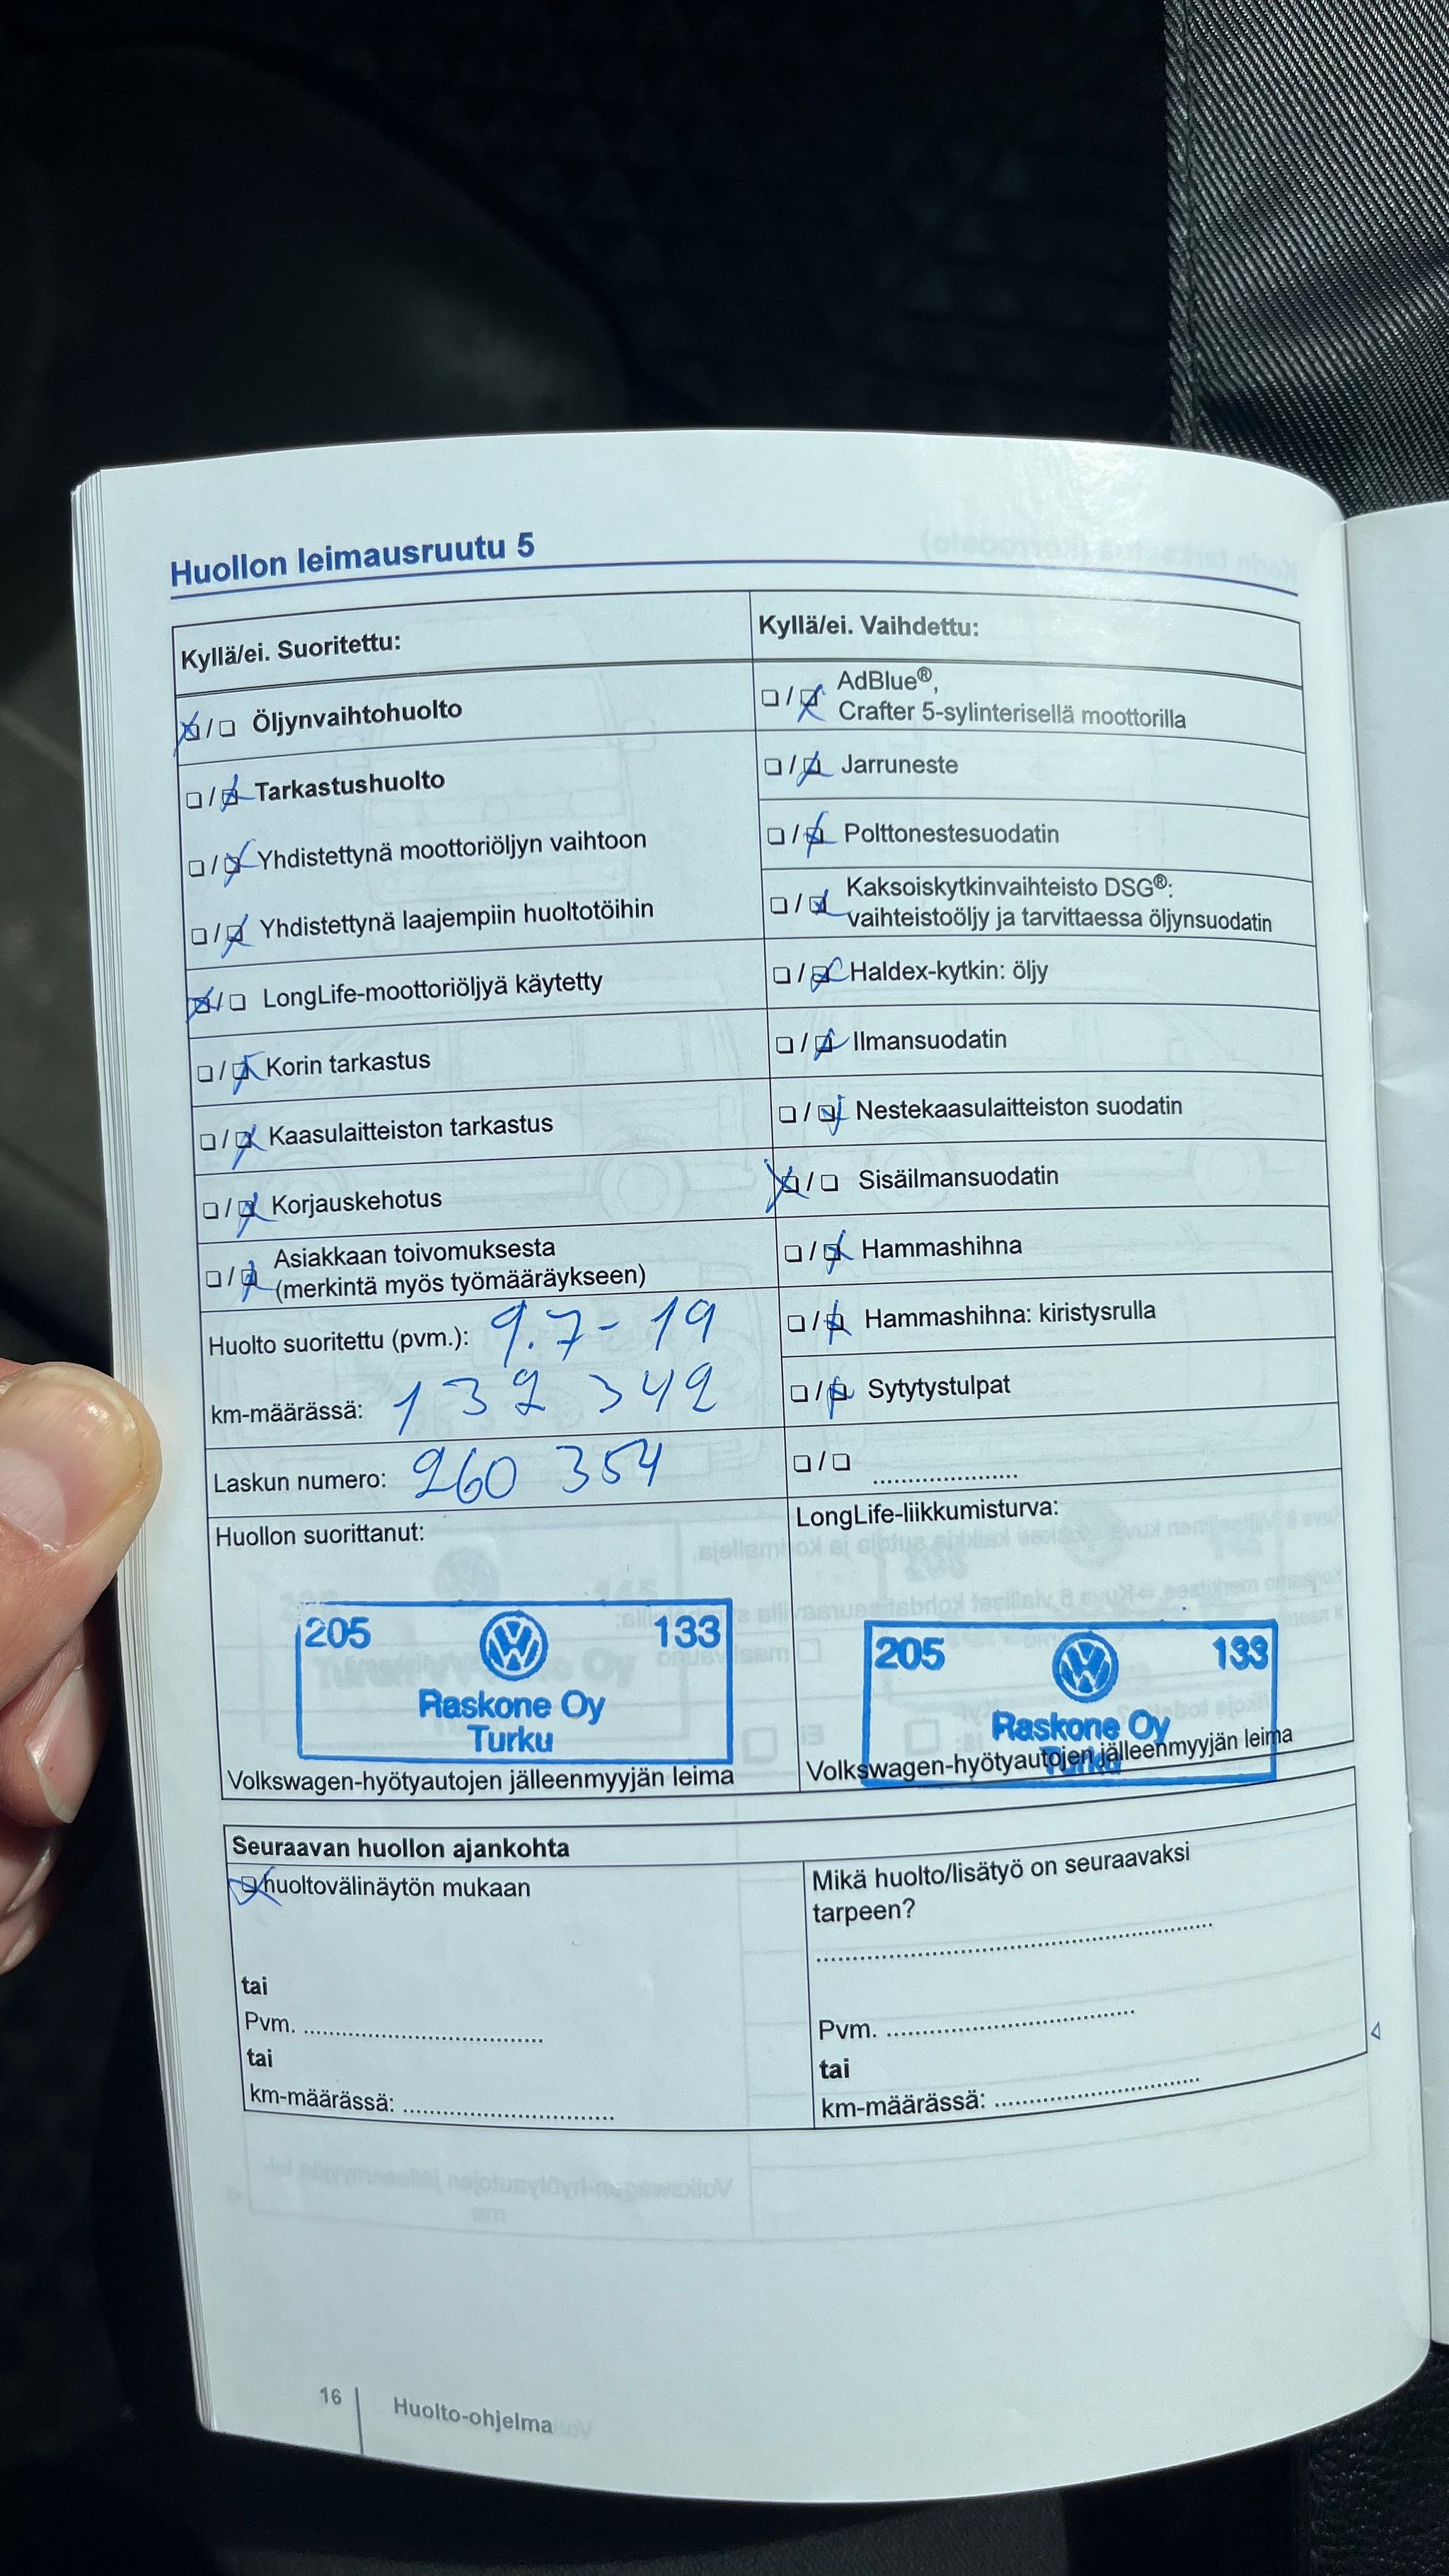 Huollon leimausruutu 5
Kyllä/ei. Suoritettu:
☒/☐ Öljynvaihtohuolto
☐/☒ Tarkastushuolto
☐/☒ Yhdistettynä moottoriöljyn vaihtoon
☐/☒ Yhdistettynä laajempiin huoltotöihin
☒/☐ LongLife-moottoriöljyä käytetty
☐/☒ Korin tarkastus
☐/☒ Kaasulaitteiston tarkastus
☐/☒ Korjauskehotus
☐/☒ Asiakkaan toivomuksesta
(merkintä myös työmääräykseen)
Huolto suoritettu (pvm.): 9.7-19
km-määrässä: 132 342
Laskun numero: 260 354
Huollon suorittanut:
205 133
Raskone Oy
Turku
Volkswagen-hyötyautojen jälleenmyyjän leima
Kyllä/ei. Vaihdettu:
☐/☒ AdBlue®,
Crafter 5-sylinterisellä moottorilla
☐/☒ Jarruneste
☐/☒ Polttonestesuodatin
☐/☒ Kaksoiskytkinvaihteisto DSG®:
vaihteistoöljy ja tarvittaessa öljynsuodatin
☐/☒ Haldex-kytkin: öljy
☐/☒ Ilmansuodatin
☐/☒ Nestekaasulaitteiston suodatin
☒/☐ Sisäilmansuodatin
☐/☒ Hammashihna
☐/☒ Hammashihna: kiristysrulla
☐/☒ Sytytystulpat
☐/☐ ....................
LongLife-liikkumisturva:
205 133
Raskone Oy
Turku
Volkswagen-hyötyautojen jälleenmyyjän leima
Seuraavan huollon ajankohta
☒ huoltovälinäytön mukaan
tai
Pvm. ..................................
tai
km-määrässä: ..............................
Mikä huolto/lisätyö on seuraavaksi
tarpeen?
........................................................
Pvm. ..................................
tai
km-määrässä: ..............................
16 Huolto-ohjelma